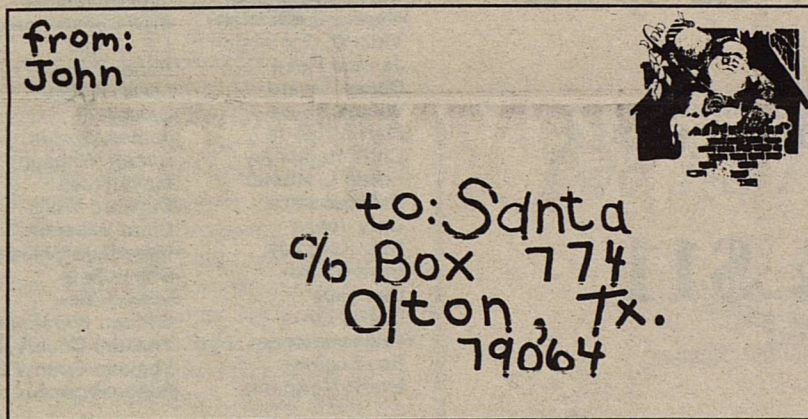 from:
John
to: Santa
c/o Box 774
Olton, Tx.
79064